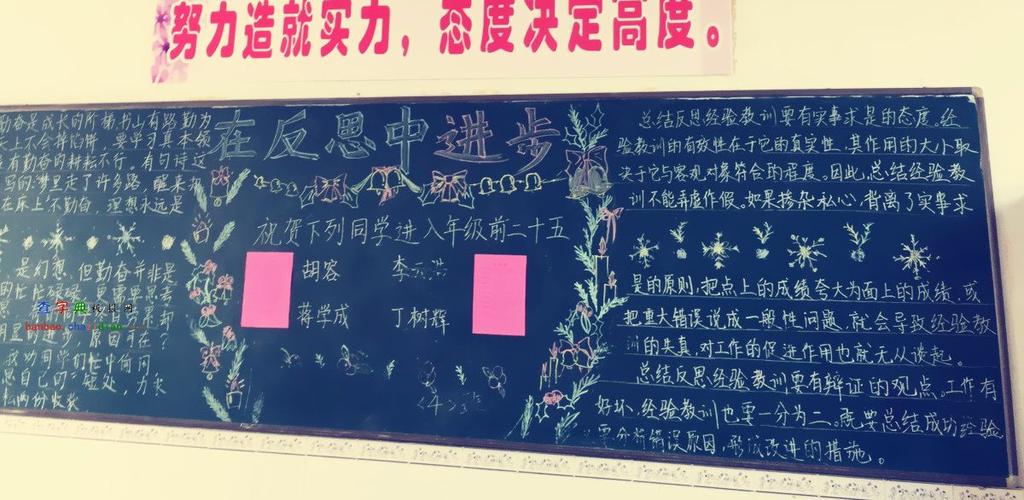 努力造就实力，态度决定高度。
勤奋是成长的阶梯书山有路勤为
天上不会掉馅饼，要学习真本领
没有勤奋的耕耘不行。有句诗这
写的梦里走了许多路，醒来
在床上不勤奋，理想永远是
是幻想。但勤奋并非是
明显的进步，原因何在？
我劝同学们忙中偷闲
思自己的短处，力求
在反思中进步
祝贺下列同学进入年级前二十五
胡容 李云浩
蒋学成 丁树辉
总结反思经验教训要有实事求是的态度。经
验教训的有效性在于它的真实性，其作用的大小取
决于它与客观对象符合的程度。因此，总结经验教
训不能弄虚作假。如果掺杂私心，背离了实事求
是的原则，把点上的成绩夸大为面上的成绩，或
把重大错误说成一般性问题，就会导致经验教
训的失真，对工作的促进作用也就无从谈起。
总结反思经验教训要有辩证的观点。工作有
好坏，经验教训也要一分为二。既要总结成功经验
要分析错误原因，形成改进的措施。
查字典
banbao.chazidian.com